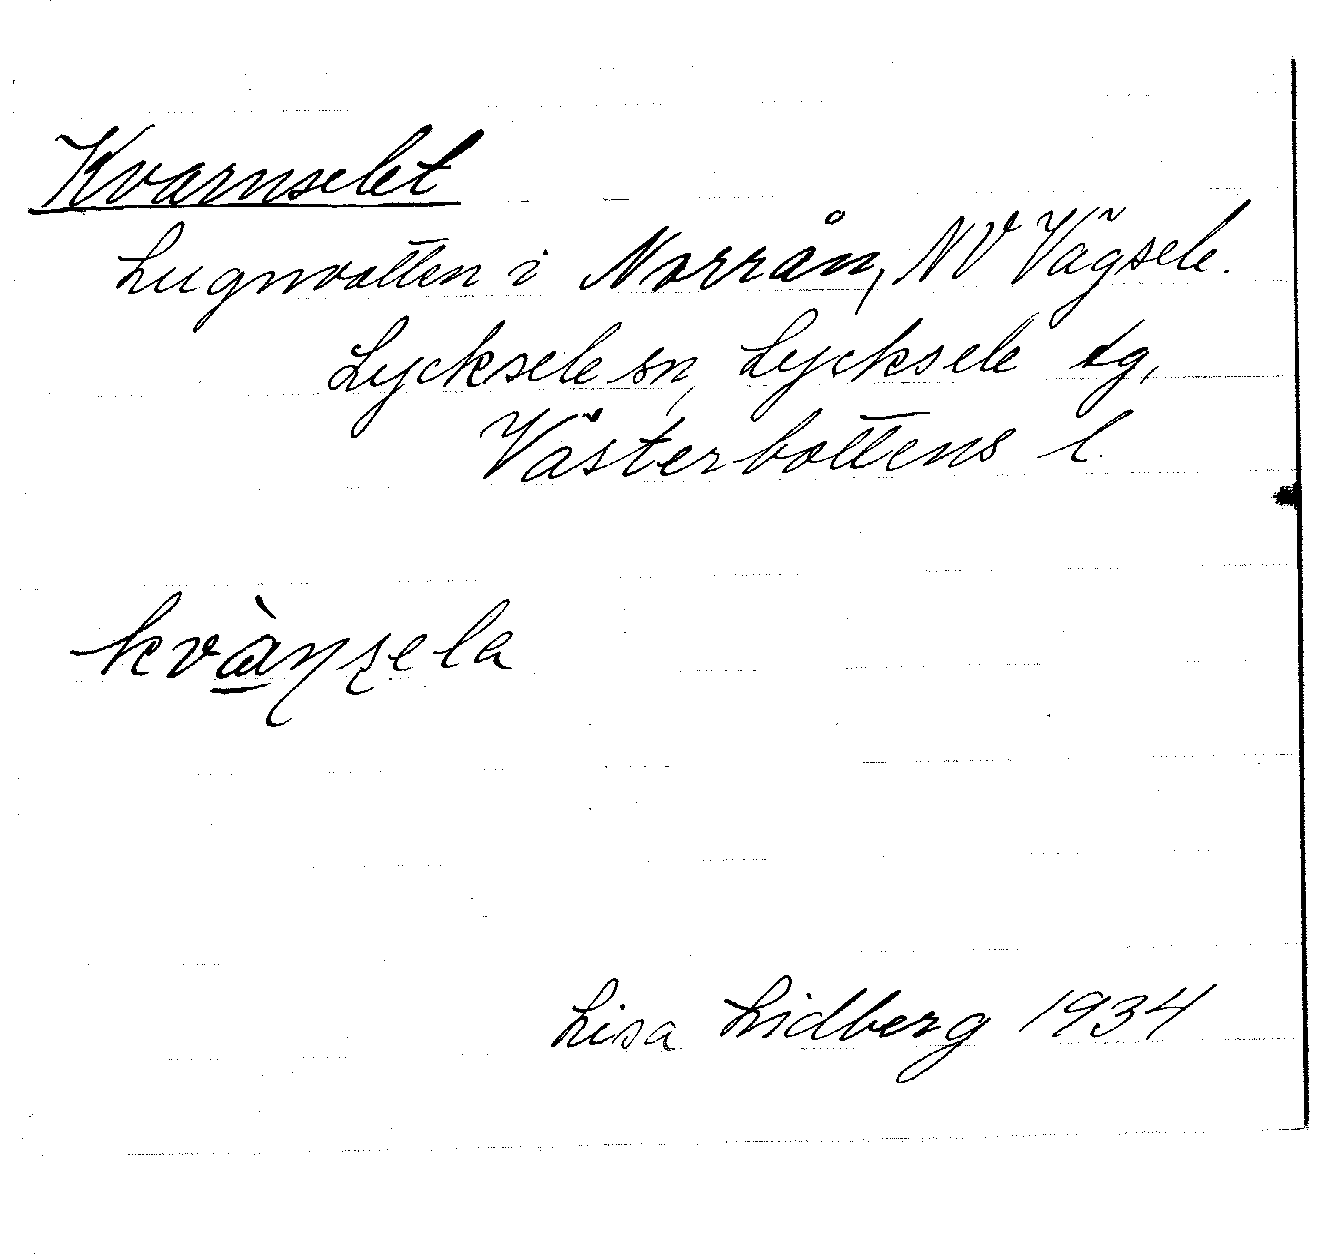 Kvarnselet
Lugnvatten i Norrån, NV Vägsele.
Lycksele sn, Lycksele tg,
Västerbottens l.
kvànsela
Lisa Lidberg 1934